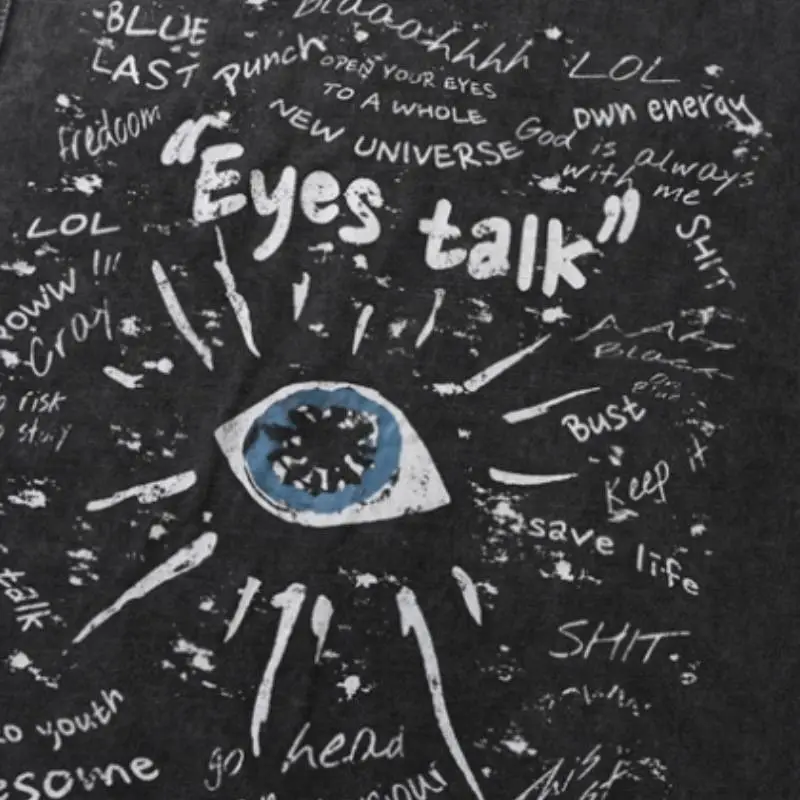 BLUE
LAST
Punch
OPEN YOUR EYES
TO A WHOLE
NEW UNIVERSE
LOL
own energy
God is always
with me
fredoom
“Eyes talk”
LOL
SHIT
POWW !!!
Cray
risk
Bust
Keep it
save life
talk
SHIT.
youth
go head